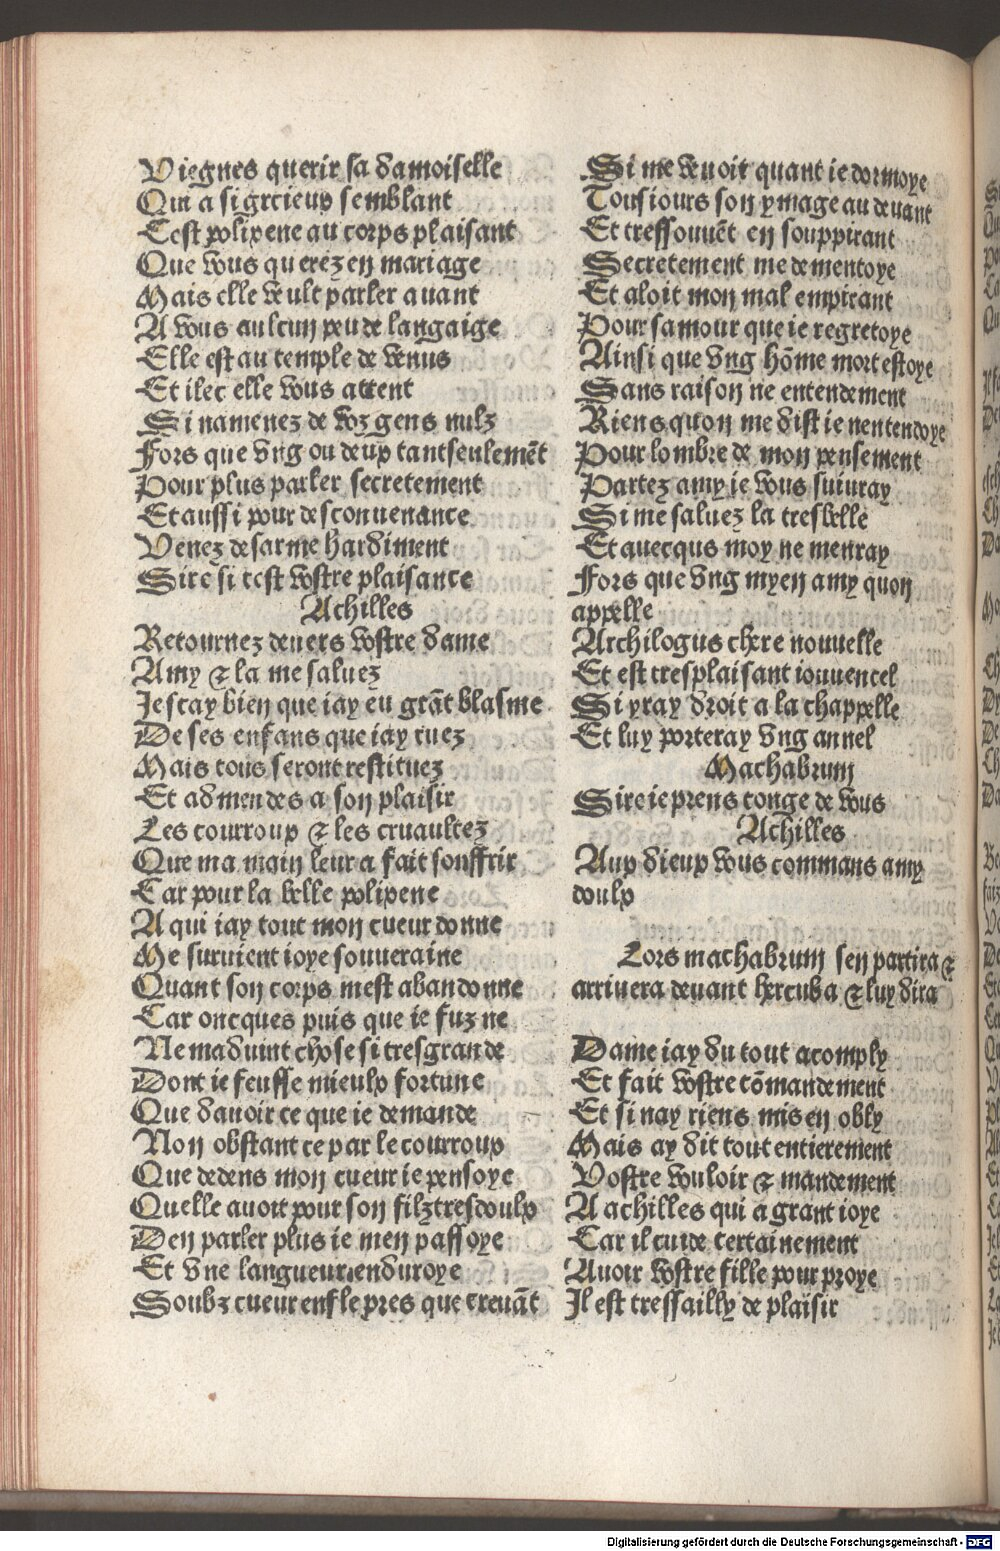 Viegnes querir sa damoiselle
Qui a si grcieux semblant
Cest polixene au corps plaisant
Que vous querez en mariage
Mais elle veult parler auant
A vous aulcun peu de langaige
Elle est au temple de venus
Et ilec elle vous attent
Si namenez de voz gens nulz
Fors que vng ou deux tantseulemēt
Pour plus parler secretement
Et aussi pour desconuenance
Venez desarme hardiment
Sire si cest vostre plaisance
Achilles
Retournez deuers vostre dame
Amy & la me saluez
Je scay bien que iay eu grāt blasme
De ses enfans que iay tuez
Mais tous seront restituez
Et admendes a son plaisir
Les courroux & les cruaultez
Que ma main leur a fait souffrir
Car pour la belle polixene
A qui iay tout mon cueur donne
Me suruient ioye souueraine
Quant son corps mest abandonne
Car oncques puis que ie fuz ne
Ne maduint chose si tresgrande
Dont ie feusse mieulx fortune
Que dauoir ce que ie demande
Non obstant ce par le courroux
Que dedens mon cueur ie pensoye
Quelle auoit pour son filz tresdoulx
Den parler plus ie men passoye
Et vne langueur enduroye
Soubz cueur enfle pres que creuāt
Si me venoit quant ie dormoye
Tousiours son ymage au deuant
Et tressouuēt en souppirant
Secretement me dementoye
Et aloit mon mal empirant
Pour samour que ie regretoye
Ainsi que vng hōme mort estoye
Sans raison ne entendement
Riens quon me dist ie nentendoye
Pour lombre de mon pensement
Partez amy ie vous suiuray
Si me saluez la tresbelle
Et auecqus moy ne menray
Fors que vng myen amy quon
appelle
Archilogus chere nouuelle
Et est tresplaisant iouuencel
Si yray droit a la chappelle
Et luy porteray vng annel
Machabrum
Sire ie prens conge de vous
Achilles
Aux dieux vous commans amy
doulx
Lors machabrum sen partira &
arriuera deuant hercuba & luy dira
Dame iay du tout acomply
Et fait vostre cōmandement
Et si nay riens mis en obly
Mais ay dit tout entierement
Vostre vouloir & mandement
A achilles qui a grant ioye
Car il cuide certainement
Auoir vostre fille pour proye
Il est tressailly de plaisir
Digitalisierung gefördert durch die Deutsche Forschungsgemeinschaft - DFG